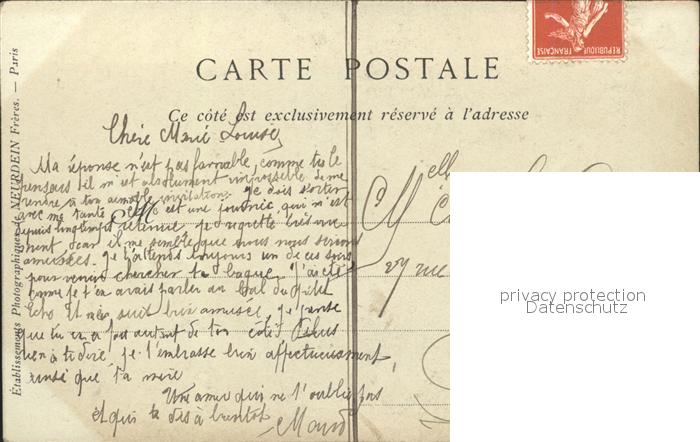 CARTE POSTALE
Ce côté est exclusivement réservé à l'adresse
Etablissements Photographiques de NEURDEIN Frères. — Paris
RÉPUBLIQUE FRANÇAISE
Chère Marie Louise,
Ma réponse n'est pas favorable, comme tu le
pensais il m'est absolument impossible de me
rendre à ton aimable invitation. Je dois sortir
avec ma tante
c'est une journée qui m'est
depuis longtemps retenue je regrette
ment car il me semble que nous nous serions
amusées. Je t'attends toujours un de ces
pour venir chercher ta bague. J'ai été
comme je t'en avais parler au bal du Petit
Echo et m'y suis bien amusée, je pense
que tu en a fait autant de ton côté. Plus
rien à te dire je t'embrasse bien affectueusement
ainsi que ta mère
Une amie qui ne t'oublie pas
et qui te dis à bientôt
Mlle
27 rue
privacy protection
Datenschutz